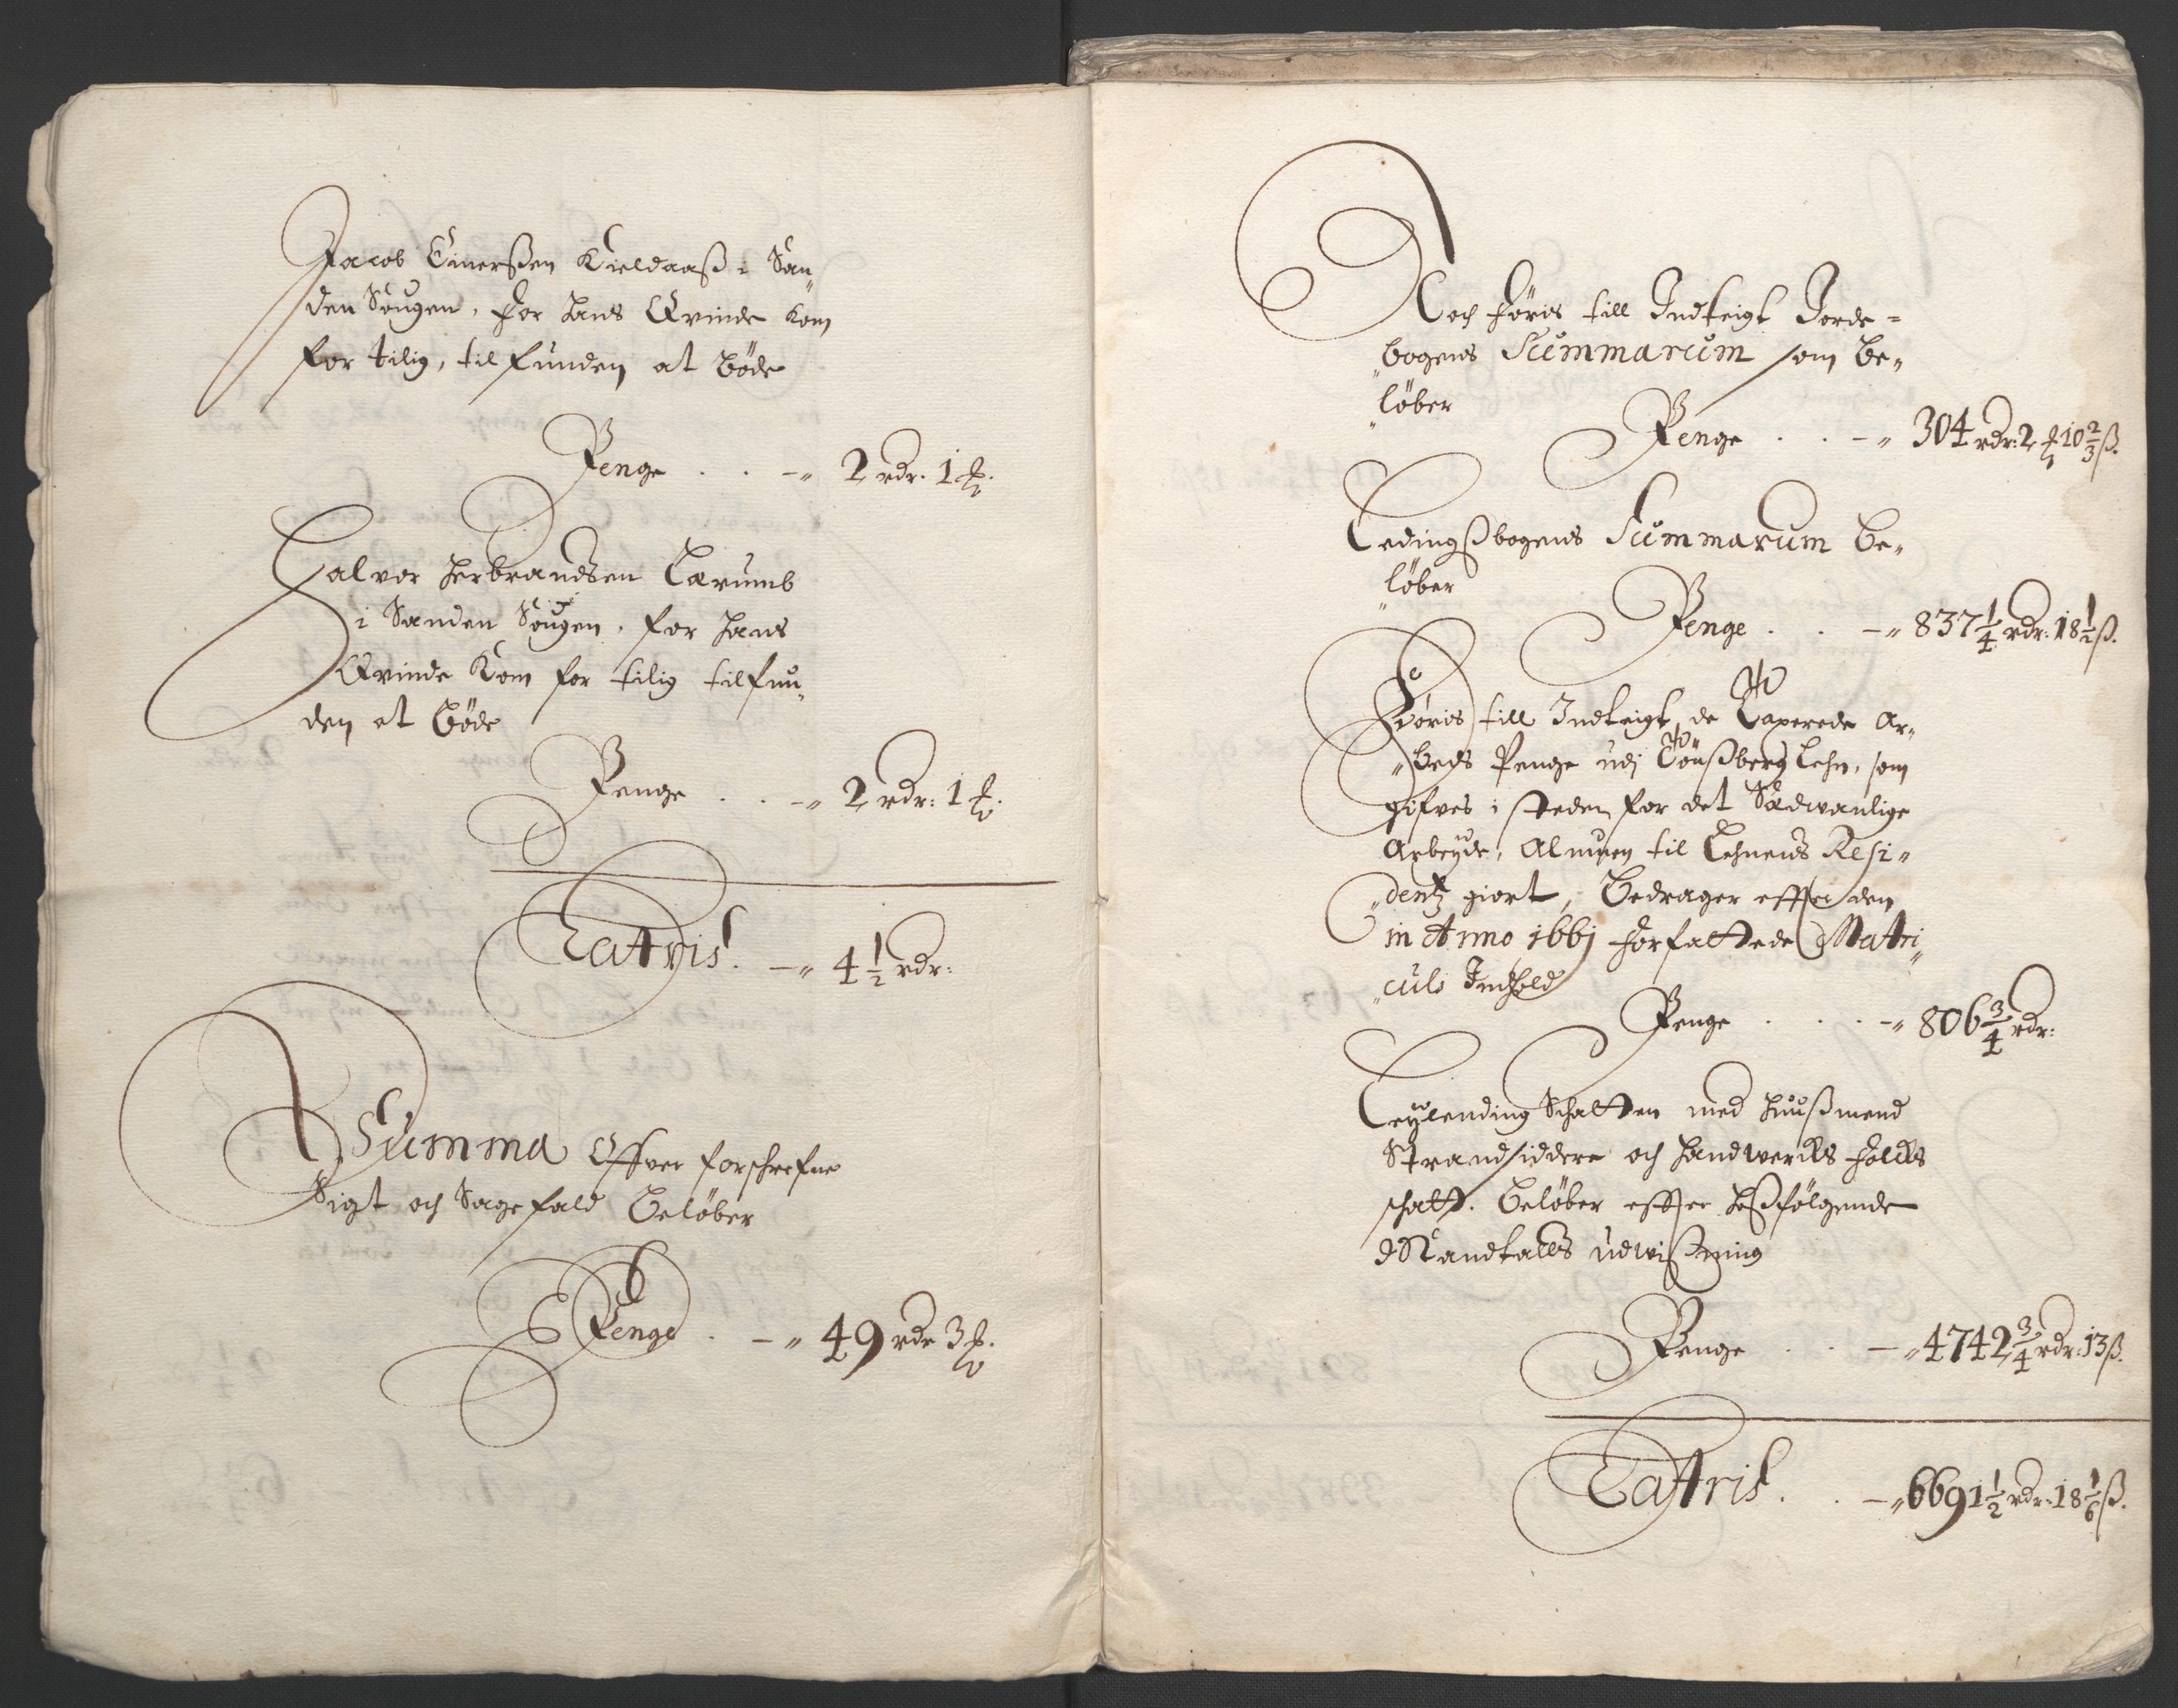 Jacob Einerßen Kieldaaß i San„
den Sougen, for hans Qvinde kom
for tilig, til funden at bøde
Penge . . -„ 2 rdr. 1 ℔.
Halvor Herbrandsen Tærumb
i Sanden Sougen, for hans
Qvinde kom for tilig tilfun„
den at bøde
Penge . . -„ 2 rdr: 1 ℔.
Latris. -„ 4 1/2 rdr:
Summa Offver forschrefne
Sigt och Sagefald beløber
Penge . -„ 49 rdr 3 ℔.
Noch føris till Indteigt Jorde=
„bogens Summarum som be„
„løber
Penge . . -„ 304 rdr: 2 ℔ 10 2/3 ß.
Ledingßbogens Summarum be„
„løber
Penge . . -„ 837 1/4 rdr: 18 1/2 ß.
Føris till Indteigt, de Taxerede Ar„
„beds Penge udj Tønßberg Lehn, som
gifves i steden for det Sædvanlige
Arbeyde, Almuen til Lehnens Resi„
„dentz giort, bedrager effter den
in Anno 1661 forfattede Matri„
„culs Indhold
Penge . . . -„ 806 3/4 rdr:
Leylending Schatten med Huußmend
Strandsiddere och Handwercks folckis
schatt. beløber effter hoßfølgende
Mandtalls udwißning
Penge . . -„ 4742 3/4 rdr: 13 ß.
Latris. . -„ 6691 1/2 rdr: 18 1/6 ß.